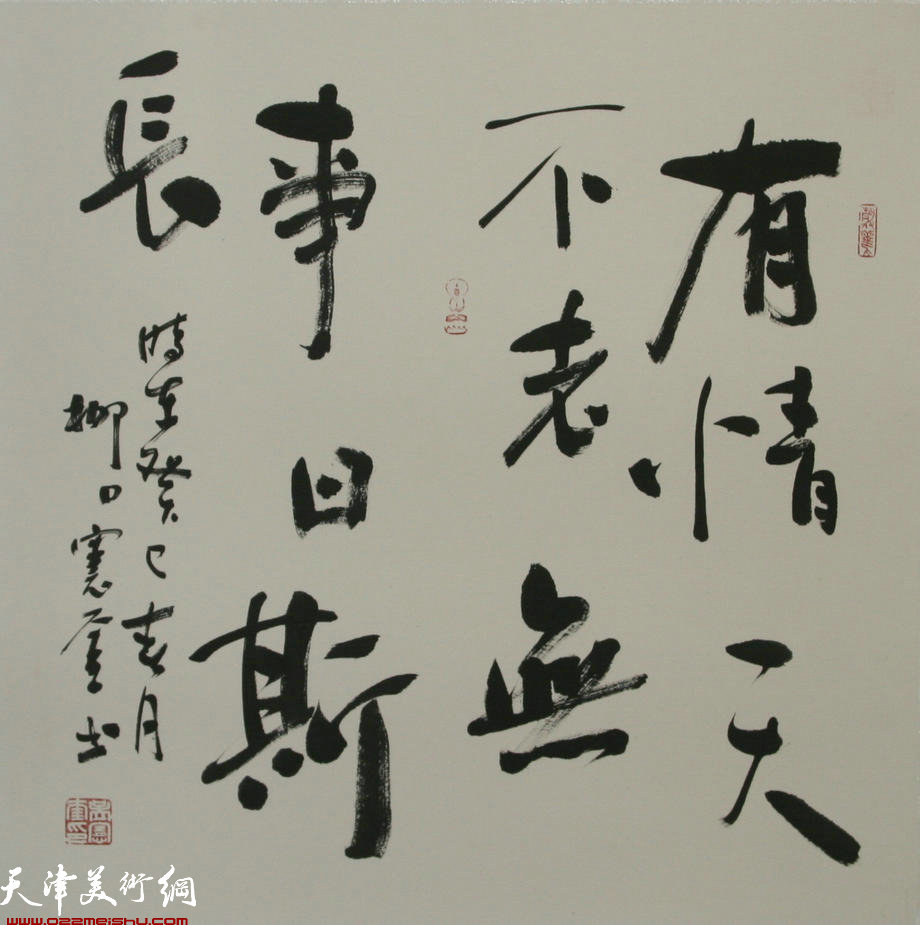 有情天
不老無
事日斯
長
時在癸巳春月
柳口憲
天津美術網
www.022meishu.com